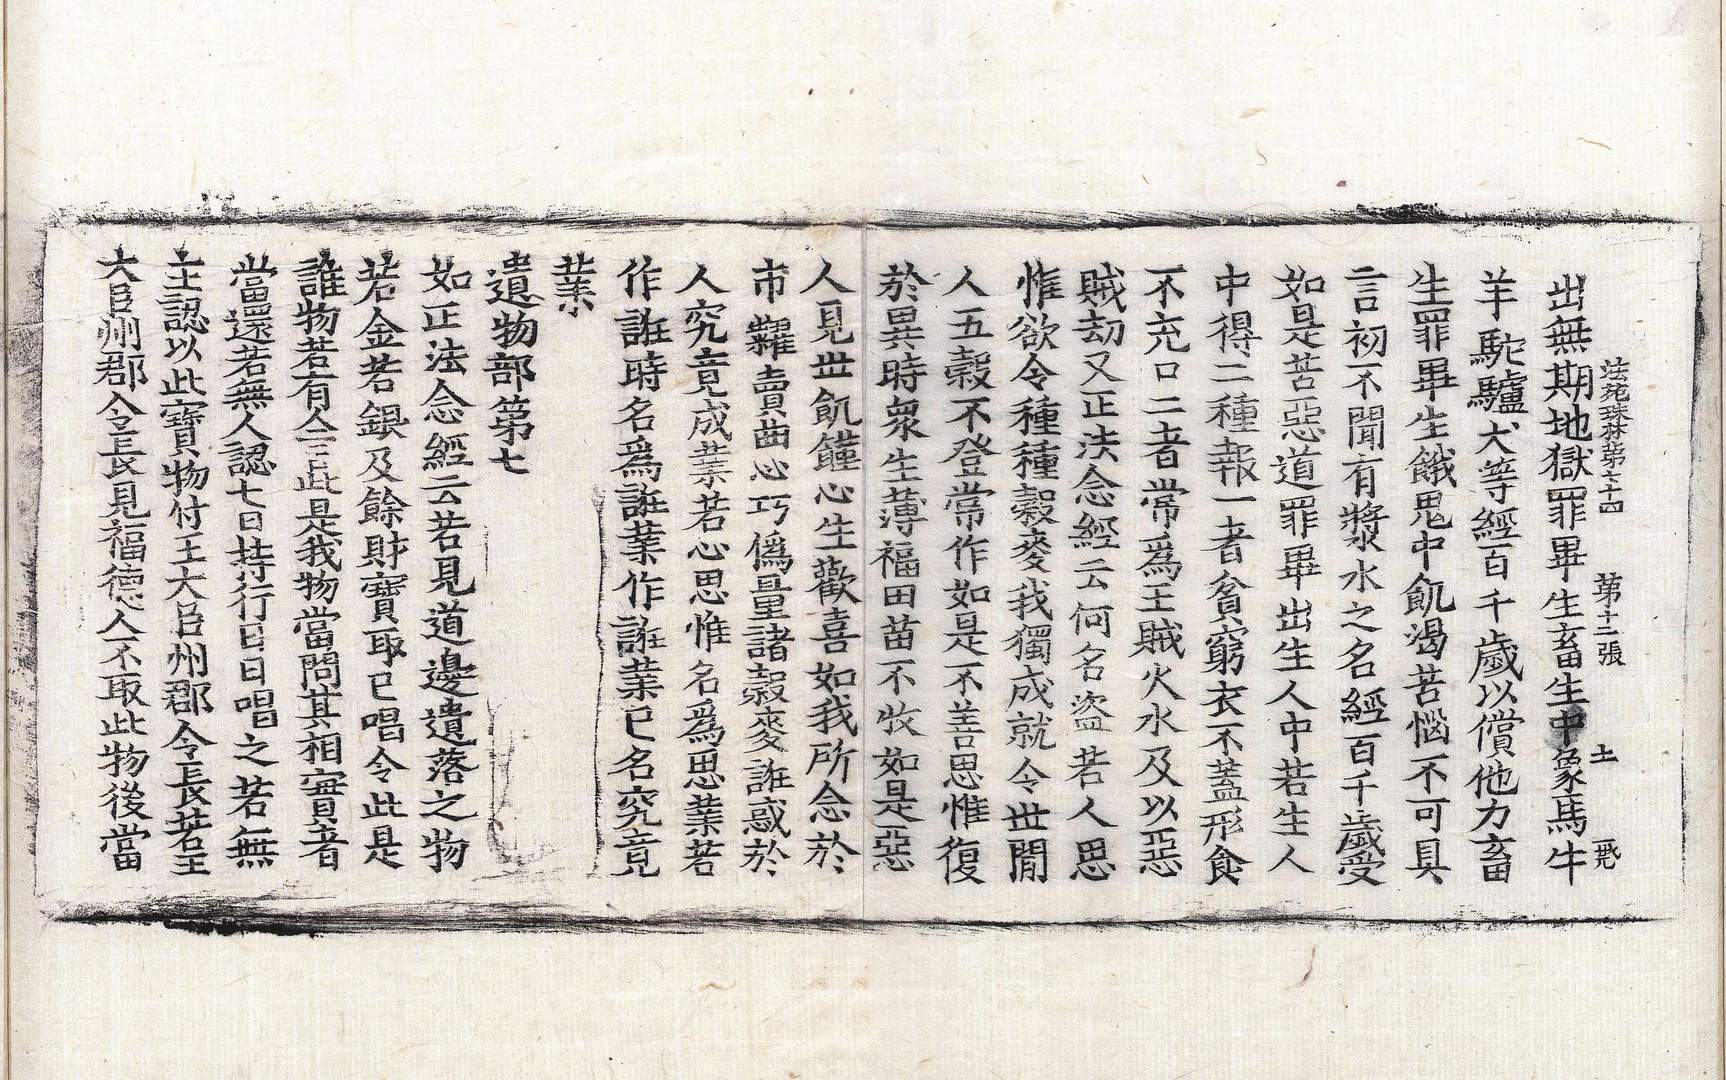 法苑珠林第七十四 第十二張 土
出無期地獄罪畢生畜生中象馬牛
羊駝驢犬等經百千歲以償他力畜
生罪畢生餓鬼中飢渴苦惱不可具
言初不聞有漿水之名經百千歲受
如是苦惡道罪畢出生人中若生人
中得二種報一者貧窮衣不蓋形食
不充口二者常爲王賊火水及以惡
賊劫又正法念經云何名盜若人思
惟欲令種種穀麥我獨成就令世閒
人五穀不登常作如是不善思惟復
於異時衆生薄福田苗不收如是惡
人見世飢饉心生歡喜如我所念於
市糶賣齒心巧僞量諸穀麥誑惑於
人究竟成業若心思惟名爲思業若
作誑時名爲誑業作誑業已名究竟
業
遺物部第七
如正法念經云若見道邊遺落之物
若金若銀及餘財寶取已唱令此是
誰物若有人言此是我物當問其相實者
當還若無人認七日持行日日唱之若無
主認以此寶物付王大臣州郡令長若王
大臣州郡令長見福德人不取此物後當